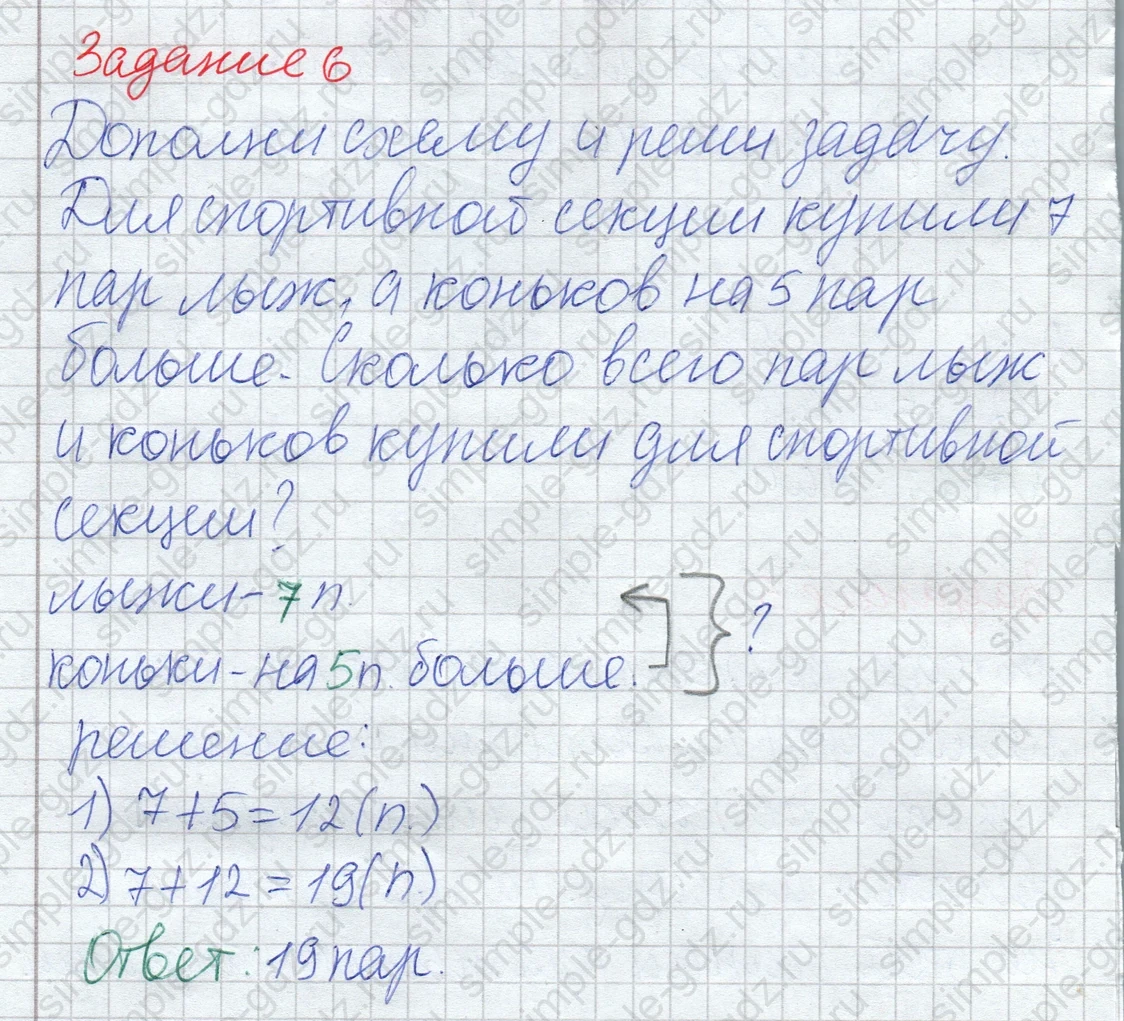 Задание 6
Дополни схему и реши задачу.
Для спортивной секции купили 7
пар лыж, а коньков на 5 пар
больше. Сколько всего пар лыж
и коньков купили для спортивной
секции?
лыжи - 7 п.
коньки - на 5 п. больше. ?
решение:
1) 7+5=12(п.)
2) 7+12=19(п.)
Ответ: 19 пар.
simple-gdz.ru